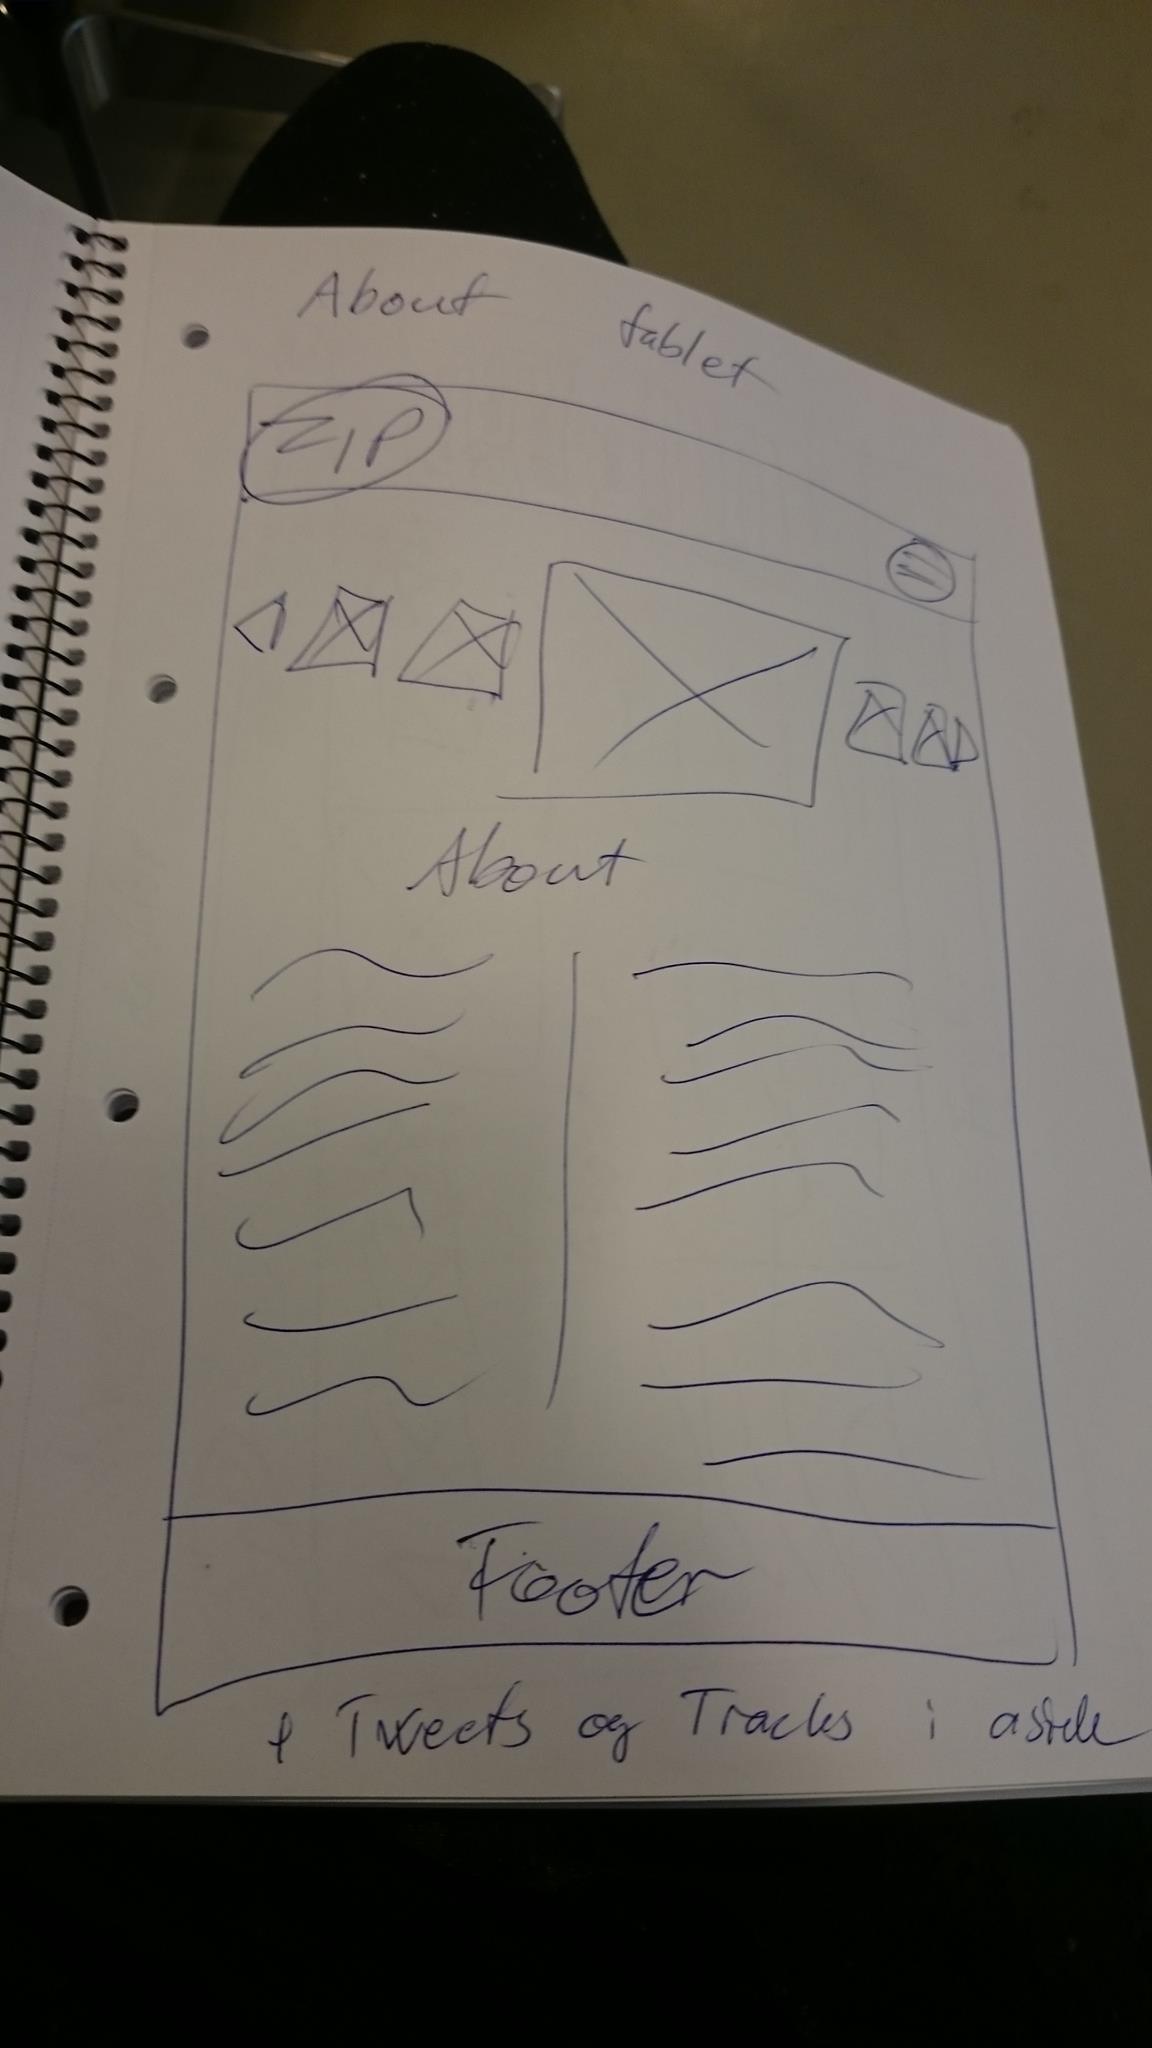 About tablet
ZIP
About
Footer
Tweets og Tracks i aside